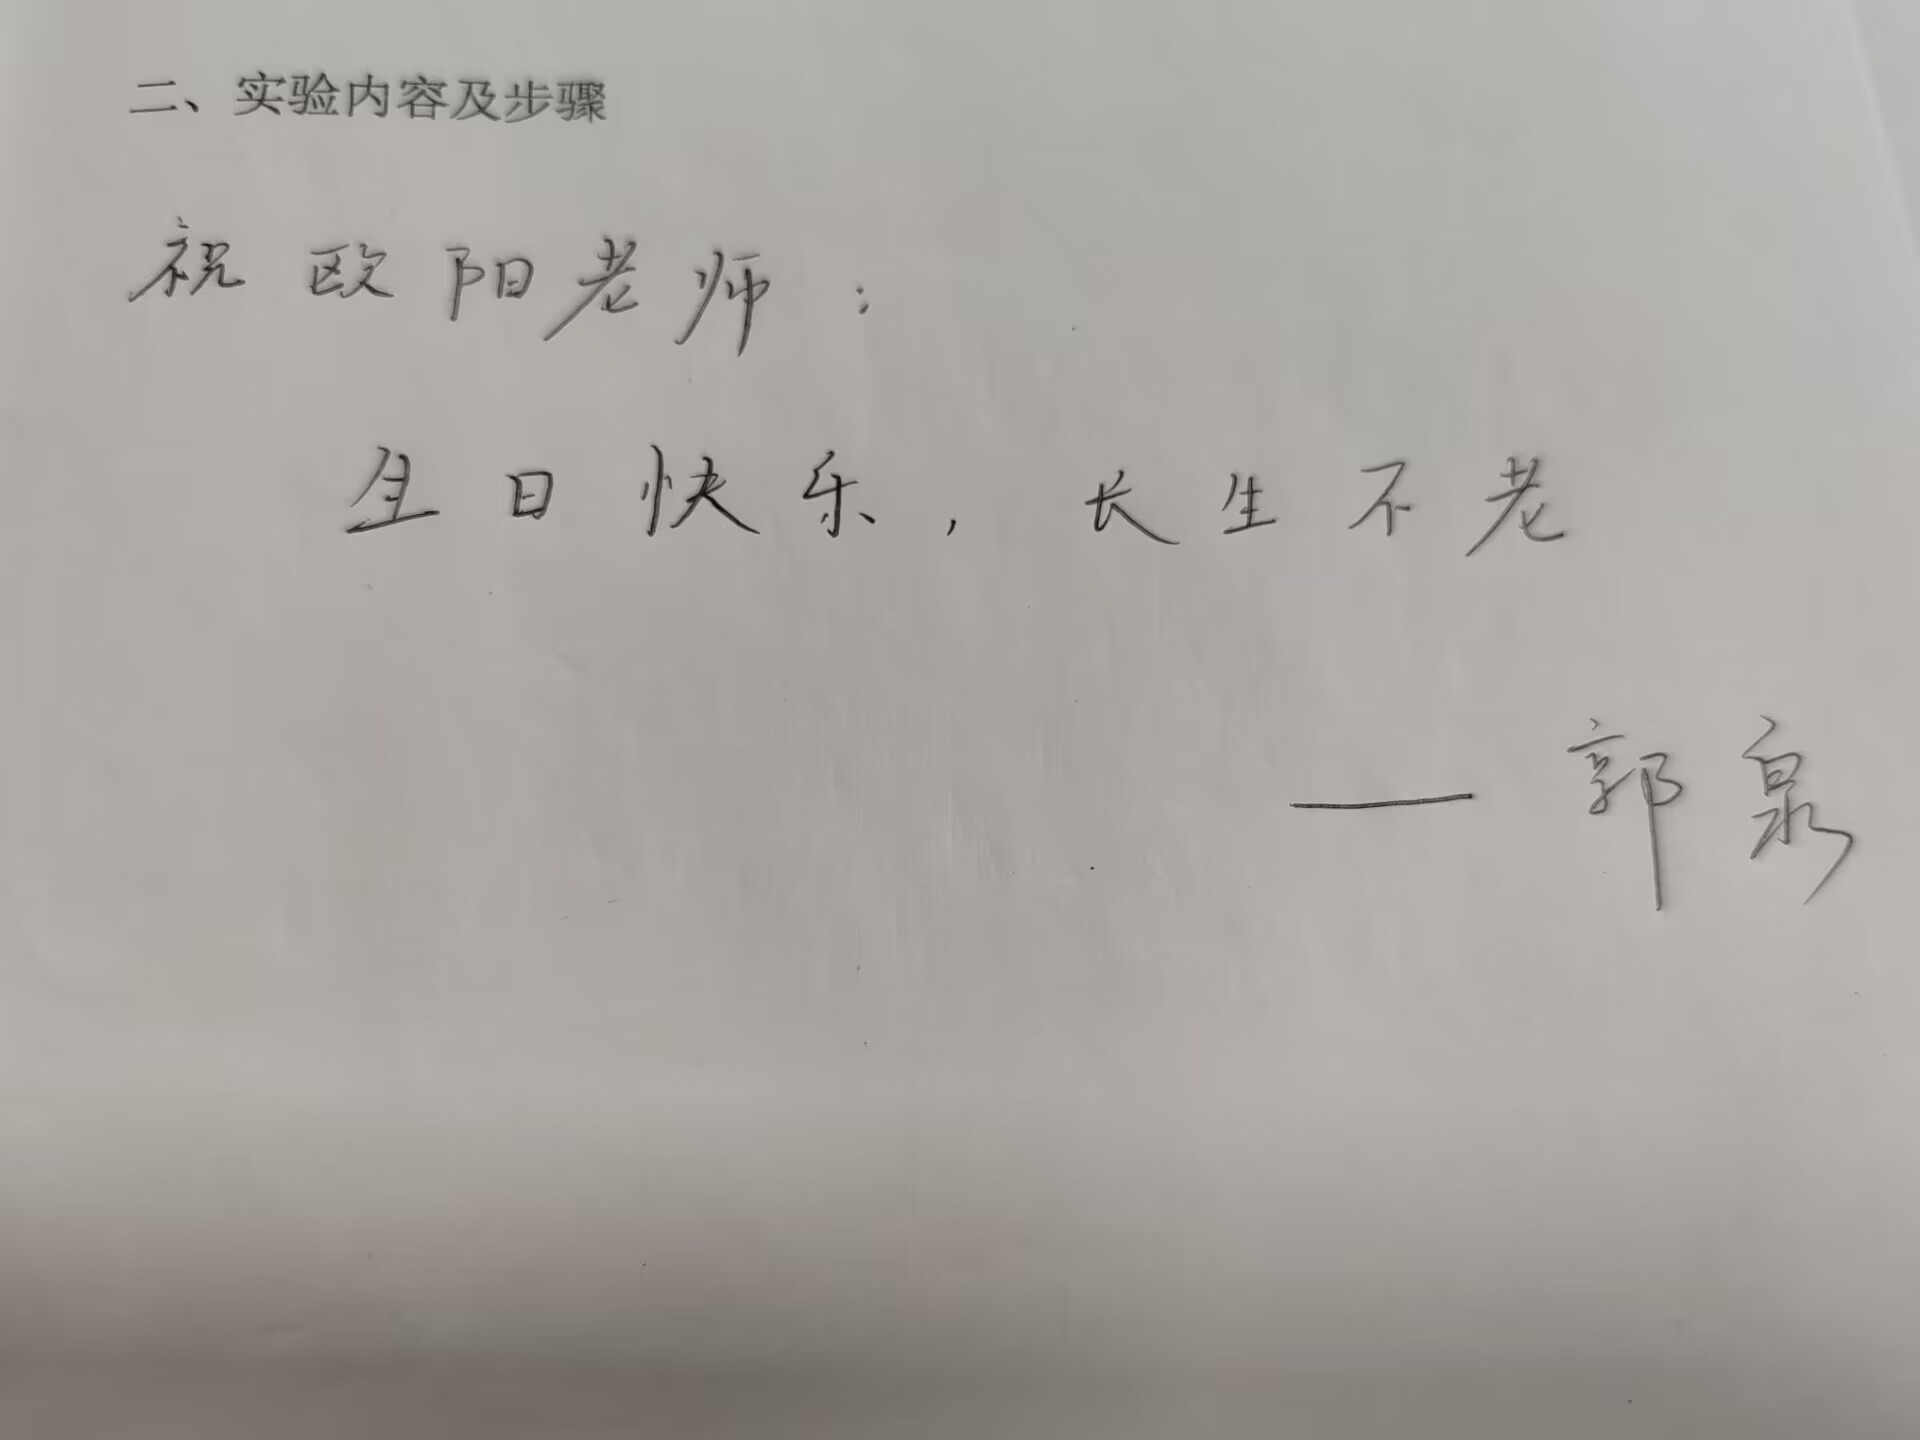 二、实验内容及步骤
祝欧阳老师：
生日快乐，长生不老
——郭泉